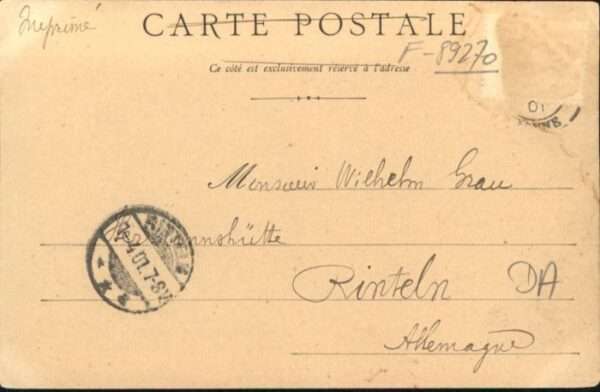 Imprimé
CARTE POSTALE
F-89270
Ce côté est exclusivement réservé à l'adresse
01
Monsieur Wilhelm Grau
RINTELN
7-8V
Rinteln DA
Allemagne